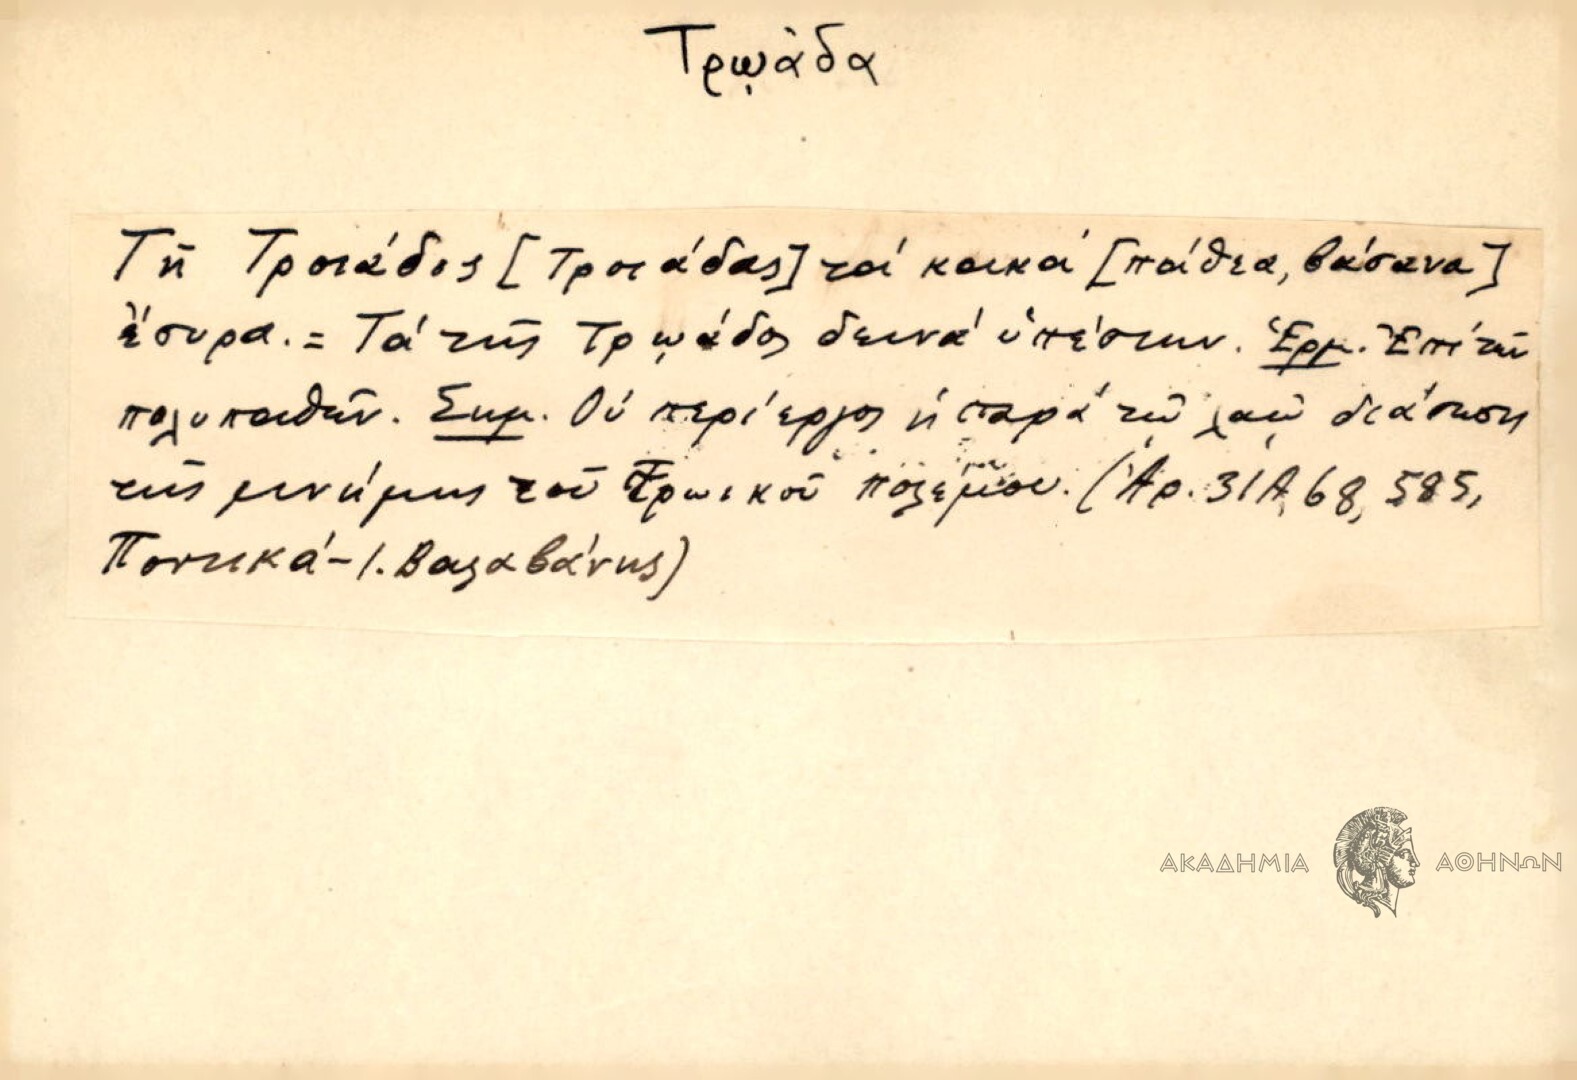 Τρῳάδα
Τῆ Τροιάδος [Τροιάδας] τά κακά [πάθεα, βάσανα]
ἔσυρα. = Τά τῆς Τρῳάδος δεινά ὑπέστην. Ἑρμ. Ἐπί τῶν
πολυπαθῶν. Σημ. Οὐ περίεργος ἡ παρά τῷ λαῷ διάσωσις
τῆς μνήμης τοῦ Τρωικοῦ πολέμου. (Ἀρ. 31Α, 68, 585,
Ποντικά - Ι. Βαλαβάνης)
ΑΚΑΔΗΜΙΑ ΑΘΗΝΩΝ